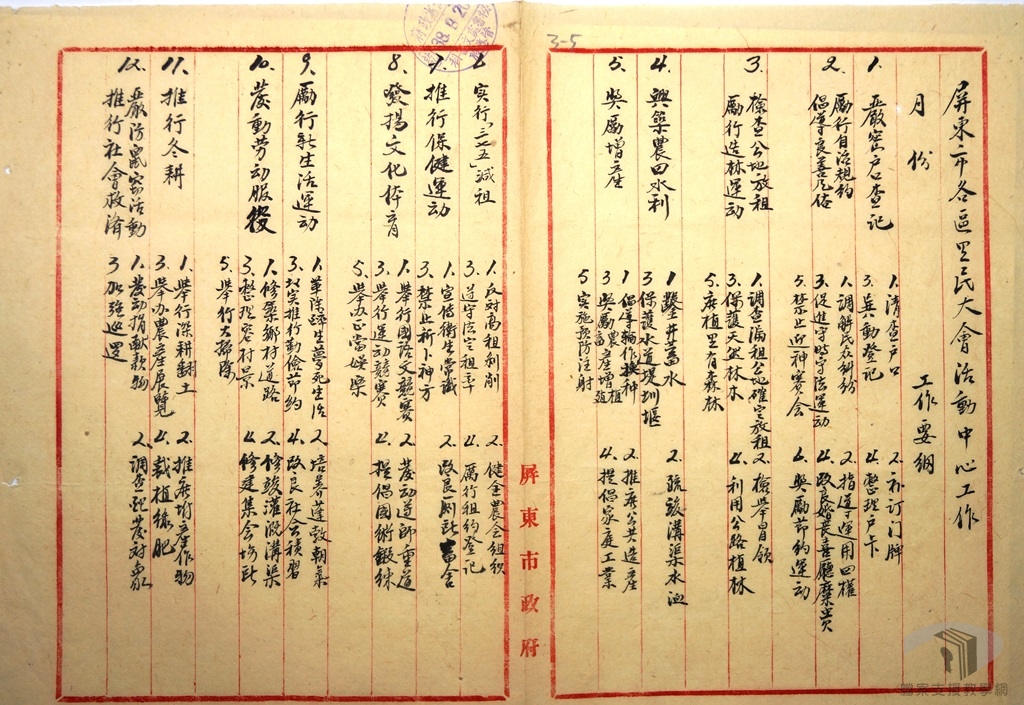 屏東市各區里民大會活動中心工作
月份 工作要綱
1. 嚴密戶口查記 1.清查戶口 2.补订门牌
3.異動登记 4.整理户卡
2. 勵行自治規約 1.調解民众糾紛 2.指導運用四權
倡導良善風俗 3.促進守時守法運動 4.改良婚喪喜慶靡費
5.禁止迎神賽会 4.奬勵節約運动
3. 檢查公地放租 1.調查漏租公地確定放租 2.檢举冒領
勵行造林運動 3.保護天然林木 4.利用公路植林
5.廣植里有森林
4. 興築農田水利 1.鑿井蓄水 2.疏浚溝渠水池
3.保護水道堤圳堰
5. 奬勵增產 1.倡導輪作換种 2.推廣公共造產
3.奬勵農產增植 4.提倡家庭工業
5.实施预防注射
6. 实行「三七五」減租 1.反对高租剥削 2.健全農会組织
3.遵守法定租率 4.厲行租约登记
7. 推行保健運动 1.宣传衛生常識 2.改良厠所畜舍
3.禁止祈卜神方
8. 發揚文化体育 1.舉行國語文競賽 2.发动尊師重道
3.舉行運动競賽 4.提倡國術鍛鍊
5.舉办正當娱樂
9. 勵行新生活運动 1.革除醉生夢死生活 2.培养蓬勃朝氣
3.切实推行勤儉节约 4.改良社会積習
10. 发動劳动服役 1.修築鄉村道路 2.修浚灌溉溝渠
3.整理容村景 4.修建集会場所
5.舉行大掃除
11. 推行冬耕 1.舉行深耕翻土 2.推廣增產作物
3.舉办農產展覽 4.栽植绿肥
12. 嚴防竊盗活動 1.发动捐献款物 2.調查配发对象
推行社會救济 3.加強巡邏
屏東市政府
3-5
檔案支援教學網